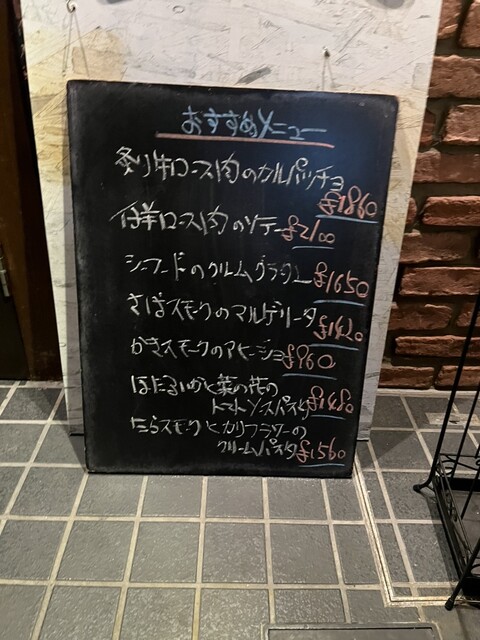 おすすめメニュー
炙り牛ロース肉のカルパッチョ
¥1860
仔羊ロース肉のソテー ¥2100
シーフードのクルムグラタン ¥1650
さばスモークのマルゲリータ ¥1420
かきスモークのアヒージョ ¥960
ほたるいかと菜の花の
トマトソースパスタ ¥1480
たらスモークとカリフラワーの
クリームパスタ ¥1560